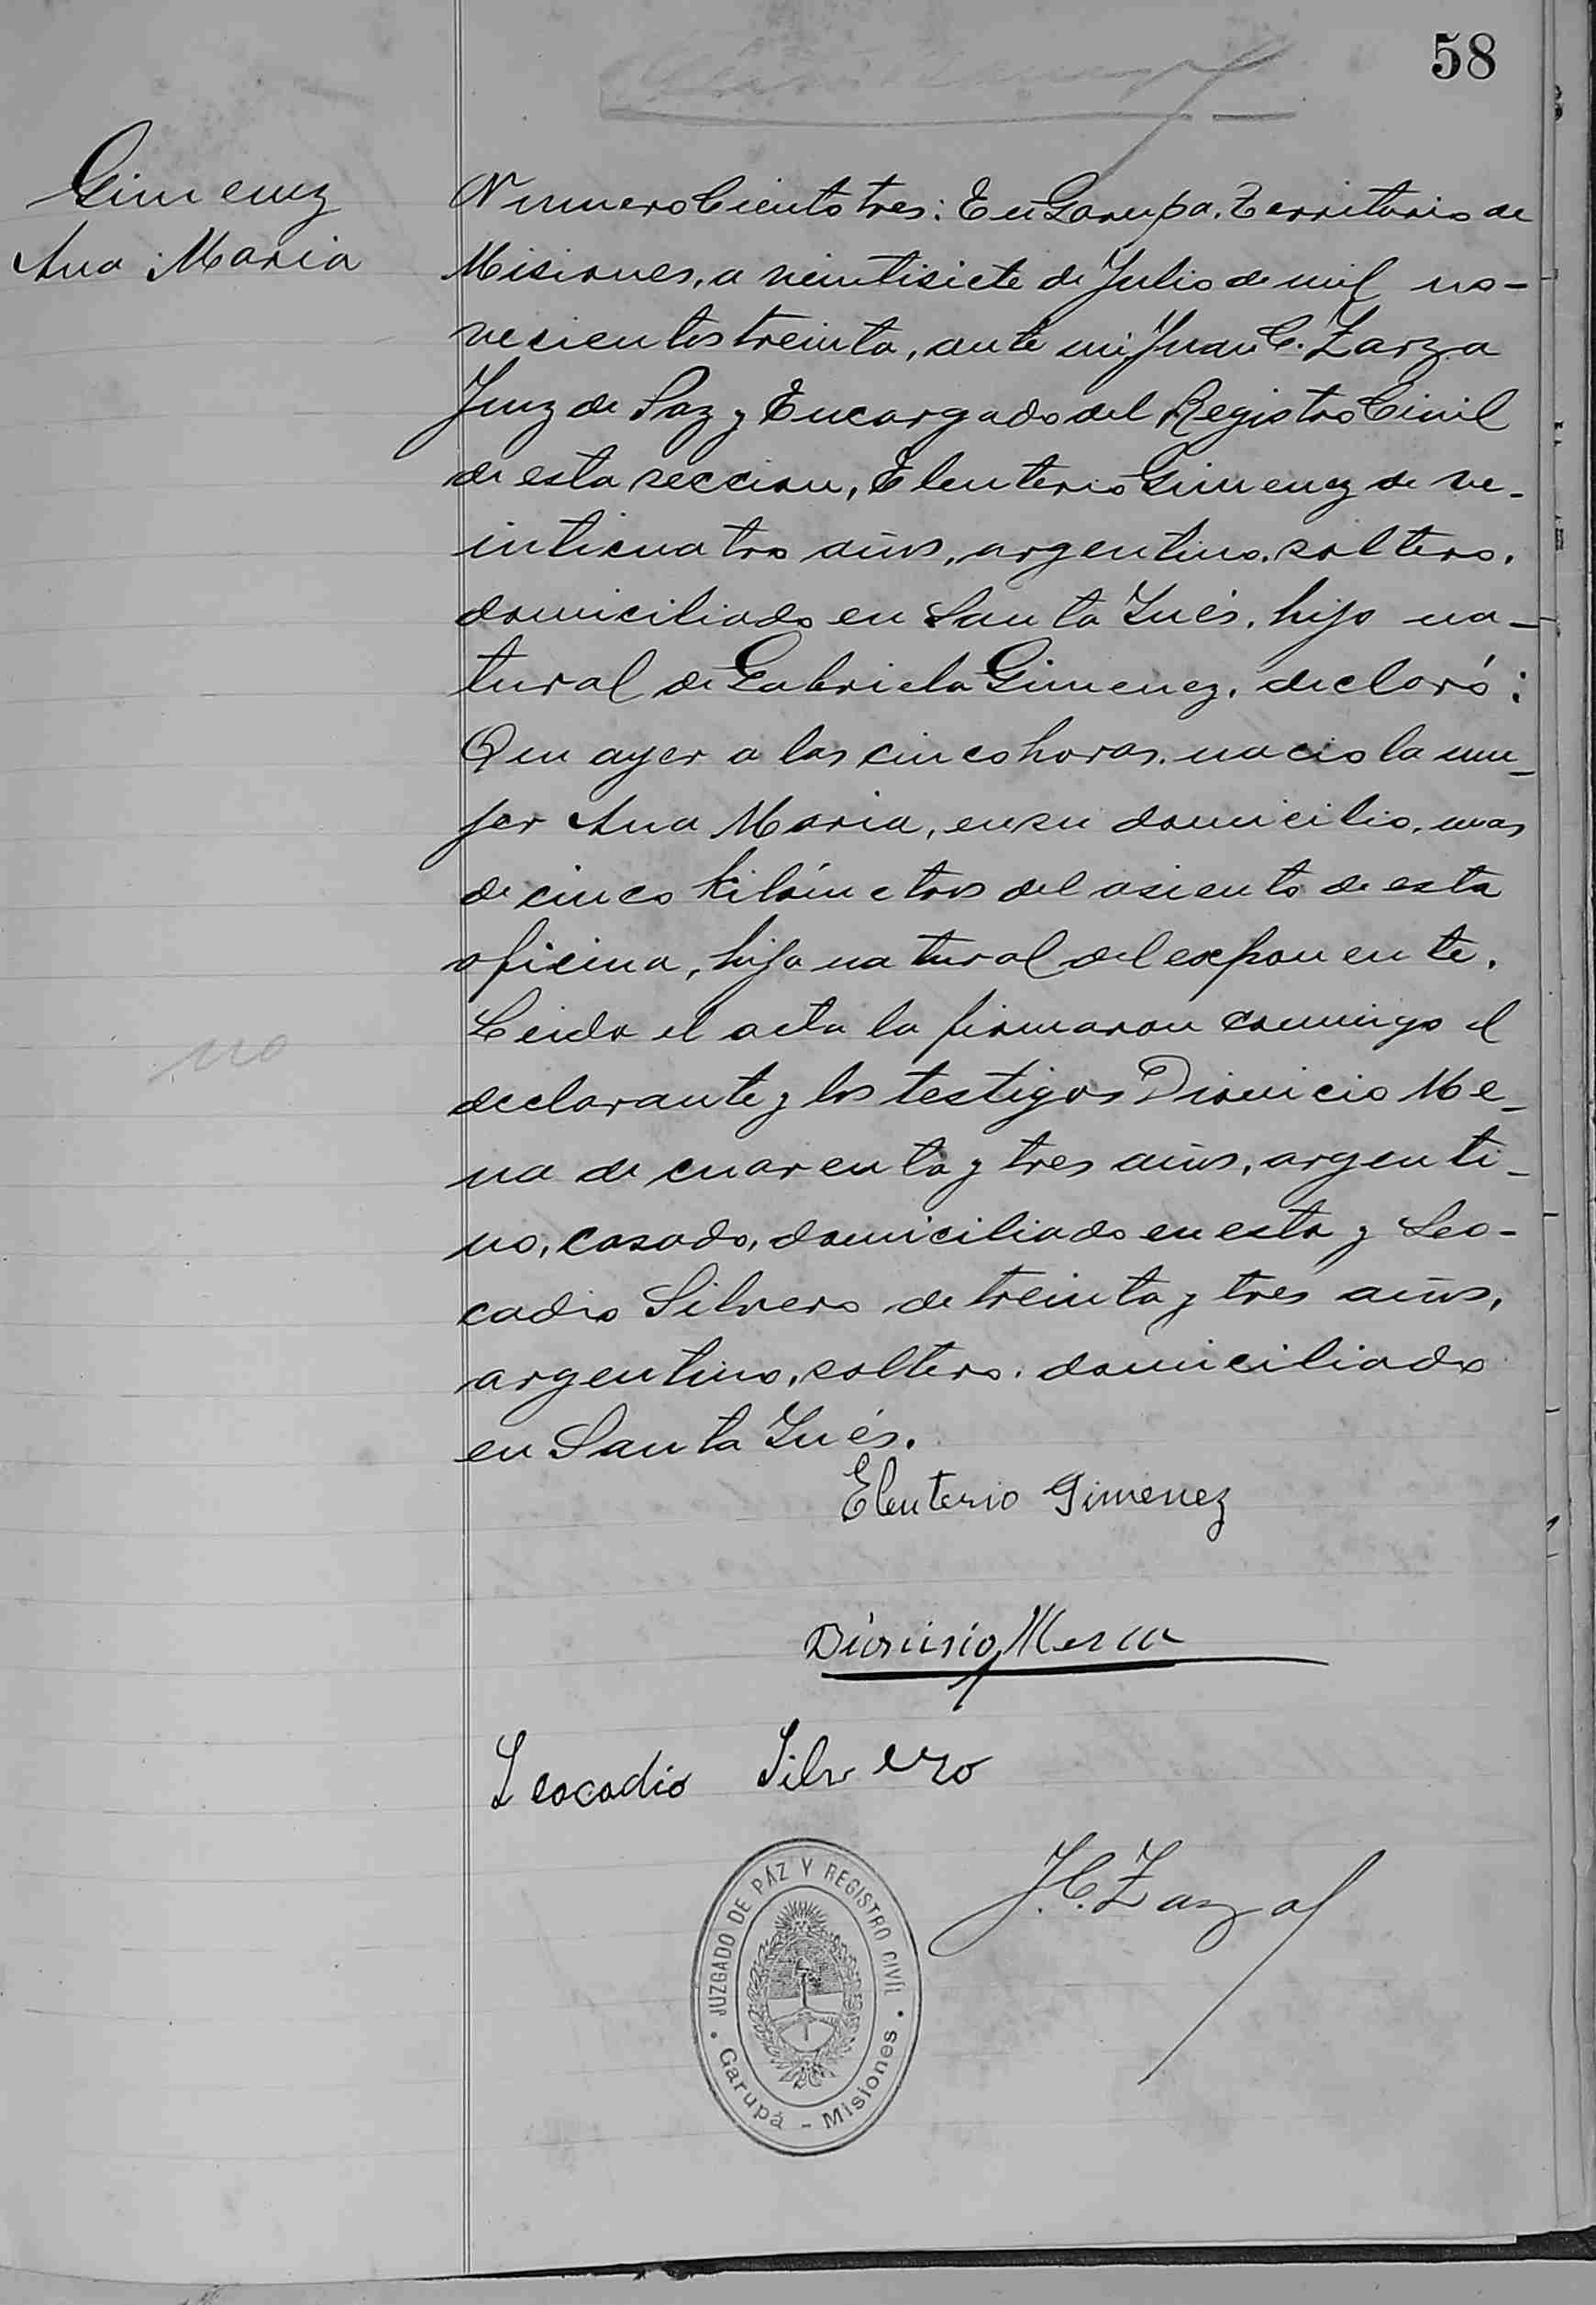 58
Gimenez
Ana Maria
Numero Ciento tres: En Garupa, Territorio de
Misiones, a veintisiete de Julio de mil no-
vecientos treinta, ante mi Juan C. Zarza
Juez de Paz y Encargado del Registro Civil
de esta seccion, Eleuterio Gimenez de ve-
inticuatro años, argentino, soltero,
domiciliado en Santa Inés, hijo na-
tural de Gabriela Gimenez, declaró:
Que ayer a las cinco horas, nacio la mu-
jer Ana Maria, en su domicilio, mas
de cinco kilómetros del asiento de esta
oficina, hija natural del exponente.
Leida el acta la firmaron conmigo el
declarante y los testigos Dionicio Me-
na de cuarenta y tres años, argenti-
no, casado, domiciliado en esta y Leo-
cadio Silvero de treinta y tres años,
argentino, soltero, domiciliado
en Santa Inés.
no
Eleuterio Gimenez
Dionisio Mena
Leocadio Silvero
J. C. Zarza
JUZGADO DE PÁZ Y REGISTRO CIVÍL
Garupá - Misiones